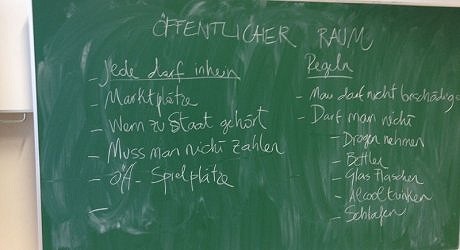 ÖFFENTLICHER RAUM
- Jede darf inhein
- Marktplätze
- Wenn zu Staat gehört
- Muss man nicht zahlen
- ÖA - Spielplätze
-
Regeln
- Man darf nicht beschädige
- Darf man nicht
- Drogen nehmen
- Bettler
- Glas Flaschen
- Alcool trinken
- Schlafen